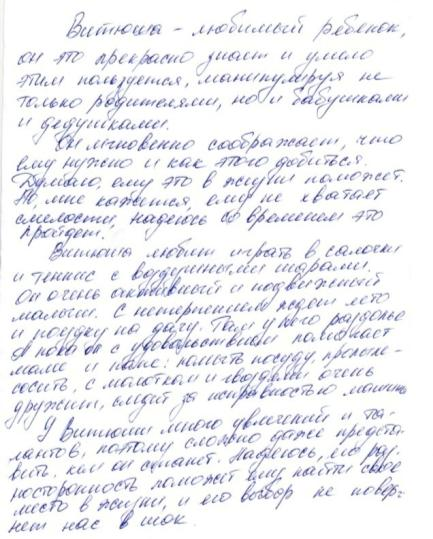 Витюша - любимый ребенок,
он это прекрасно знает и умело
этим пользуется, манипулируя не
только родителями, но и бабушками
и дедушками.
Он мгновенно соображает, что
ему нужно и как этого добиться.
Думаю, ему это в жизни поможет.
Но, мне кажется, ему не хватает
смелости, надеюсь со временем это
пройдет.
Витюша любит играть в салочки
и теннис с воздушными шарами.
Он очень активный и подвижный
малыш. С нетерпением ждет лето
и поездку на дачу. Там у него раздолье
А пока он с удовольствием помогает
маме и папе: помыть посуду, пропыле-
сосить, с молотком и гвоздями очень
дружит, следит за исправностью машины
У Витюши много увлечений и та-
лантов, поэтому сложно даже предста-
вить, кем он станет. Надеюсь, его раз-
носторонность поможет ему найти свое
место в жизни, и его выбор не поверг-
нет нас в шок.